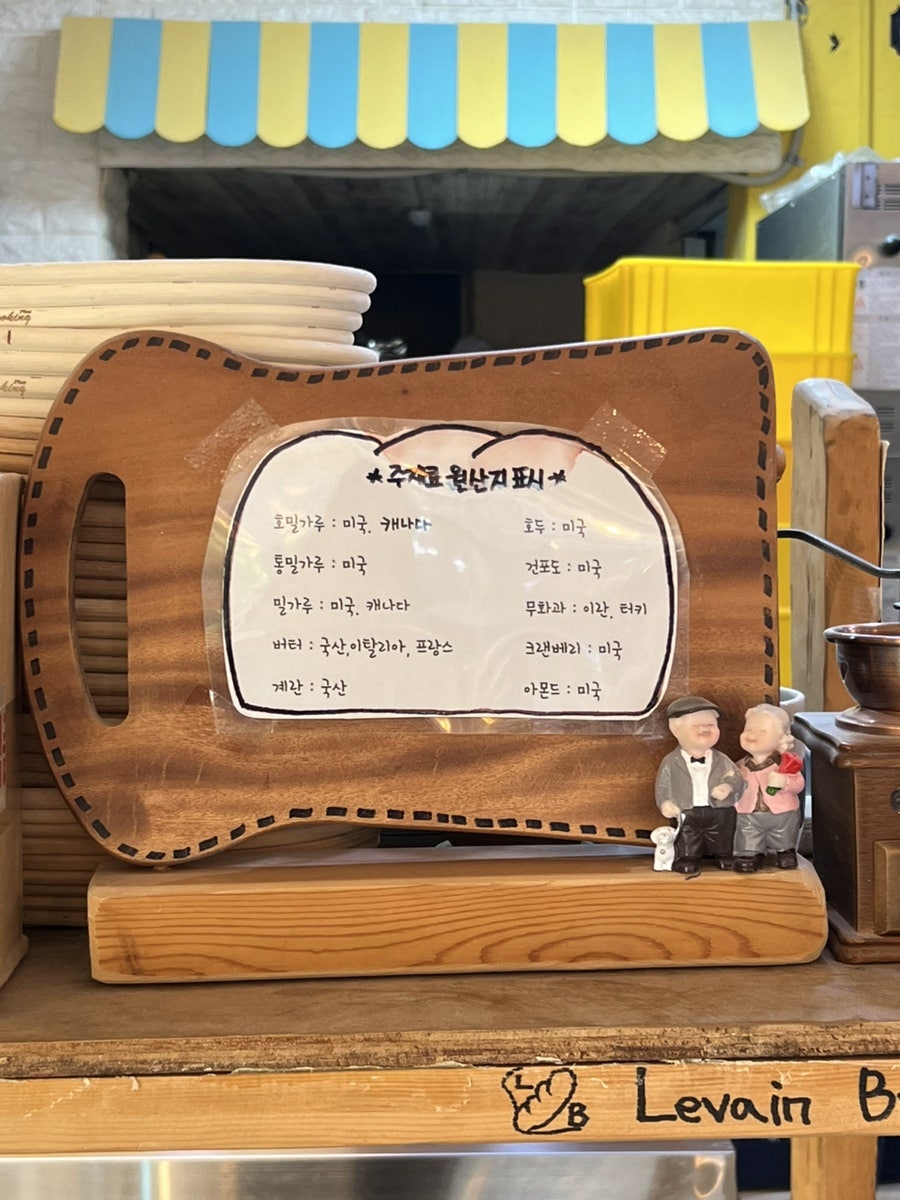 *주재료 원산지 표시*
호밀가루 : 미국, 캐나다
통밀가루 : 미국
밀가루 : 미국, 캐나다
버터 : 국산,이탈리아, 프랑스
계란 : 국산
호두 : 미국
건포도 : 미국
무화과 : 이란, 터키
크랜베리 : 미국
아몬드 : 미국
L B Levain B